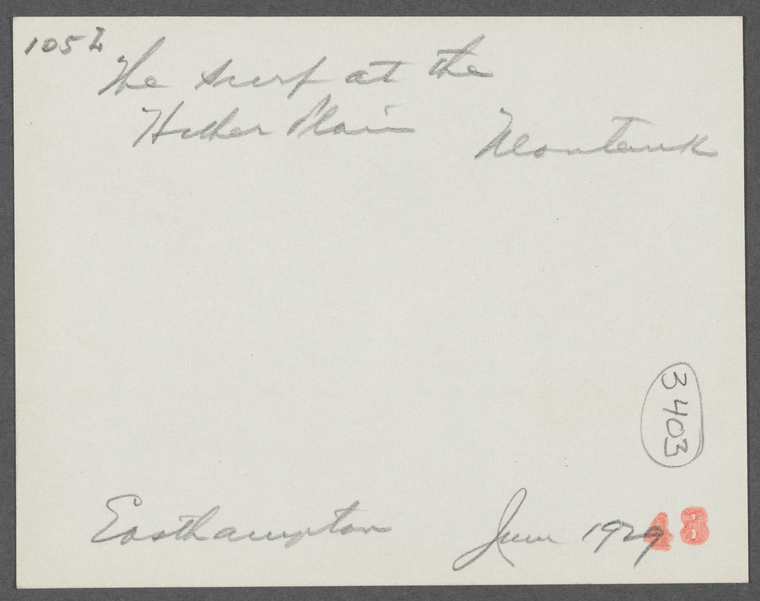 105 L
The surf at the
Hither Plain Montauk
3403
Easthampton June 1929 48